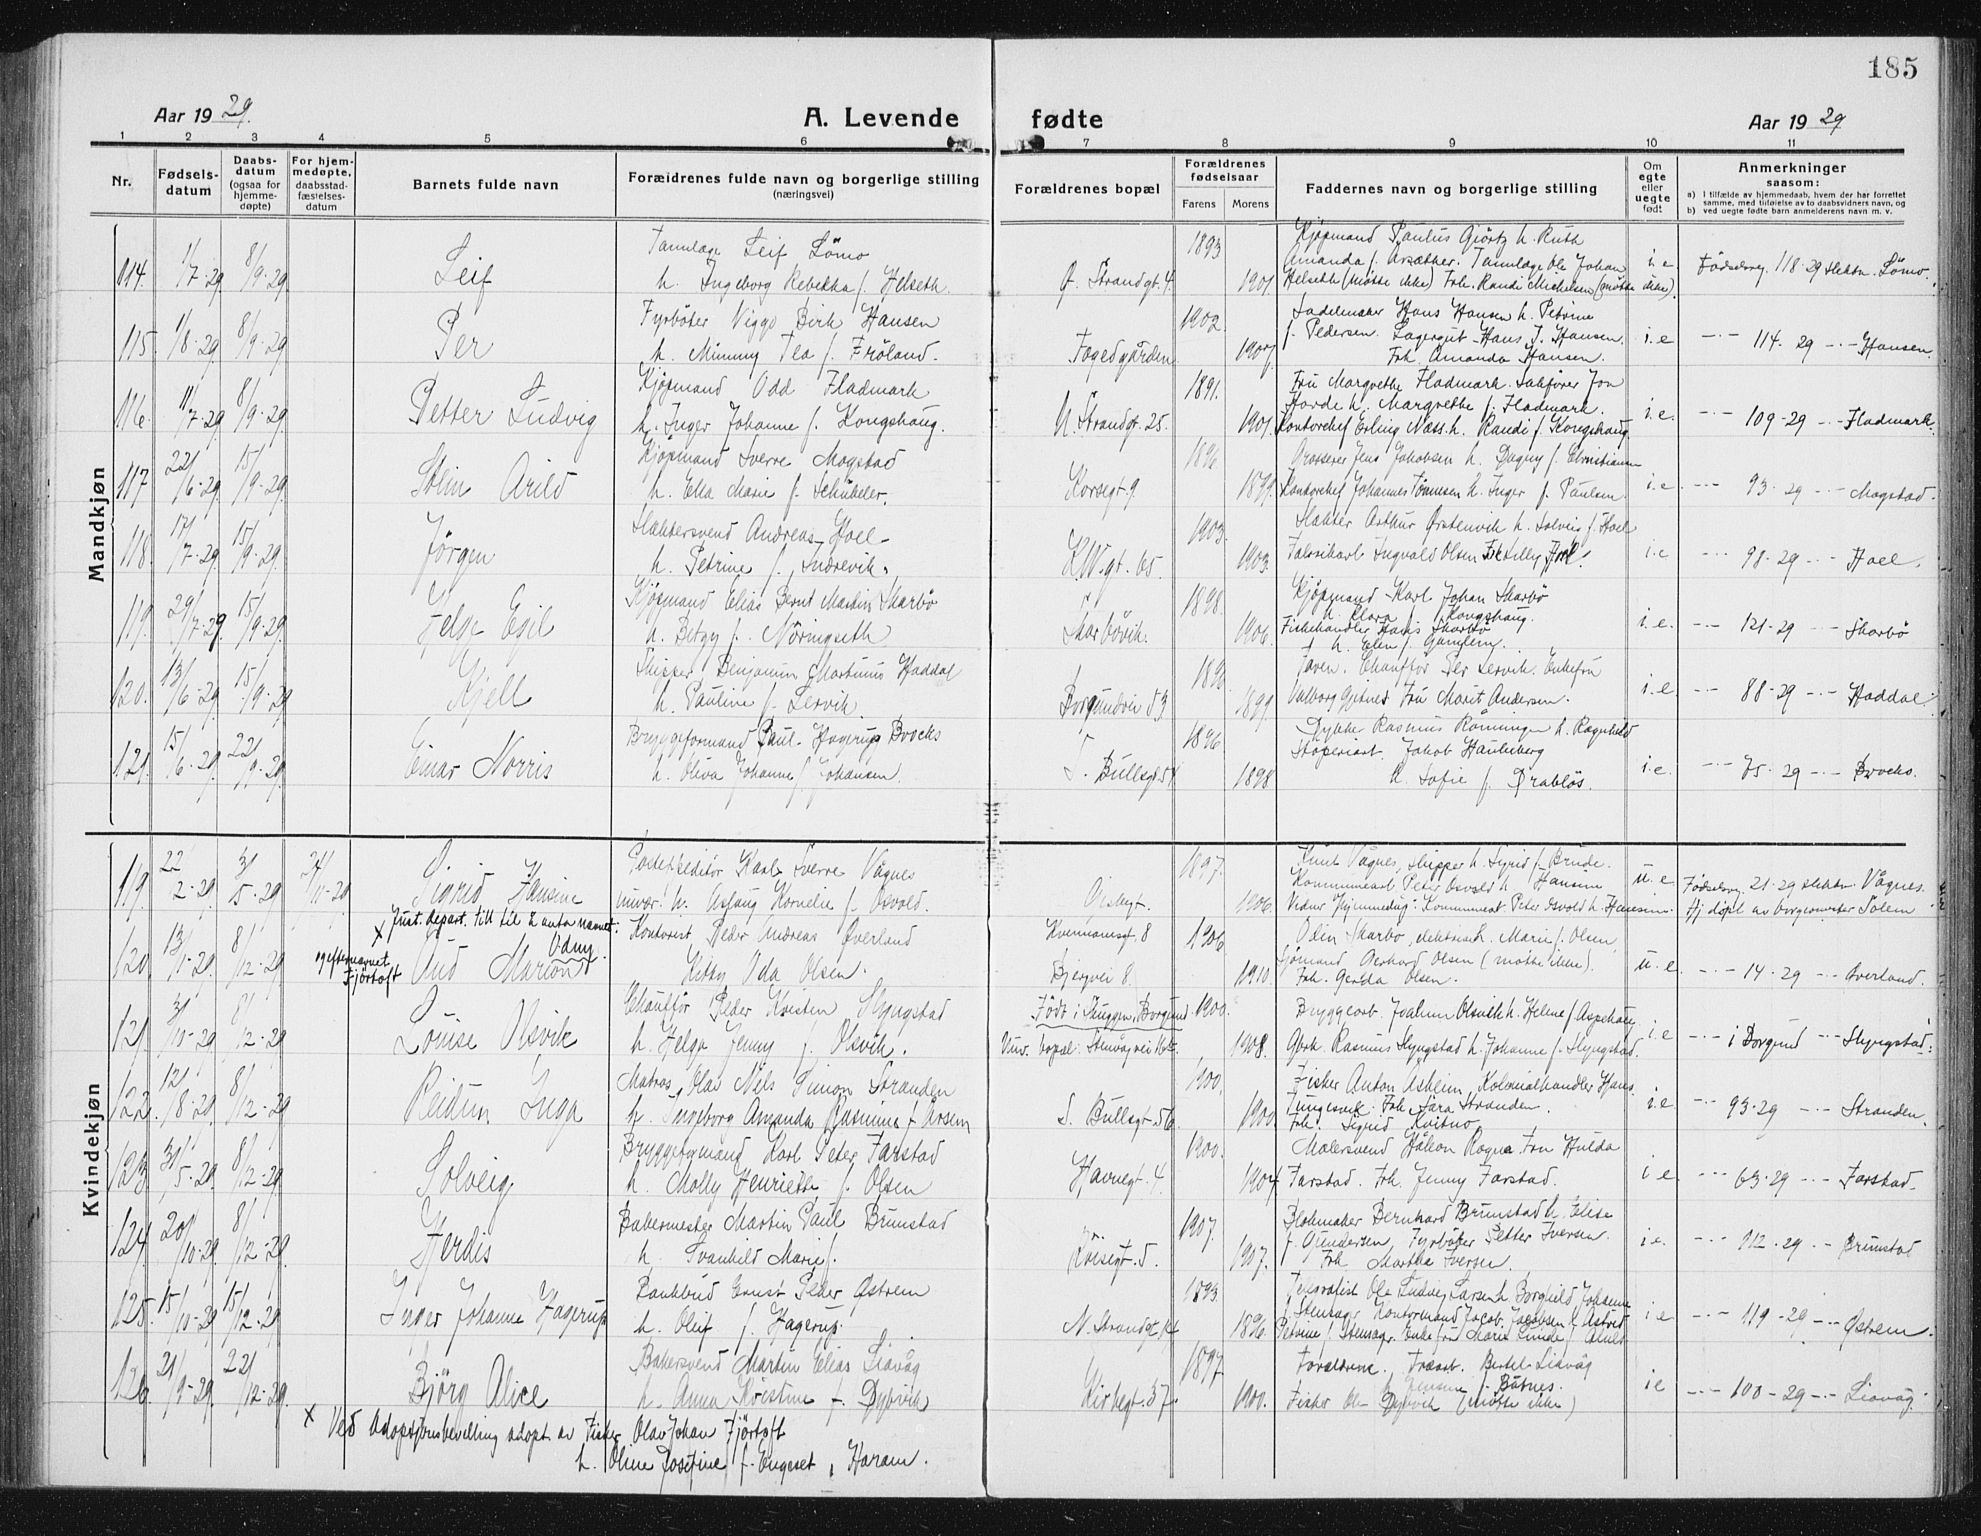 185
Aar 1929.
A. Levende fødte
Aar 1929
1 2 3 4 5 6 7 8 9 10 11
Nr.
Fødsels-
datum
Daabs-
datum
(ogsaa for
hjemme-
døpte)
For hjem-
medøpte,
daabsstad-
fæstelses-
datum
Barnets fulde navn
Forældrenes fulde navn og borgerlige stilling
(næringsvei)
Forældrenes bopæl
Forældrenes
fødselsaar
Farens Morens
Faddernes navn og borgerlige stilling
Om
egte
eller
uegte
født
Anmerkninger
saasom:
a) I tilfælde av hjemmedaab, hvem der har forrettet
samme, med tilføielse av to daabsvidners navn, og
b) ved uegte fødte barn anmelderens navn m. v.
Mandkjøn
114. 1/7-29 8/9-29 Leif
Tannlæge Leif Lömo
h. Ingeborg Rebekka f. Helseth
Ø. Strandgt. 4 1893 1901
Kjøpmand Paulus Gjörtz h. Ruth
Amanda f. Aarsæther. Tannlæge Ole Johan
Helseth (møtte ikke) Frk. Randi Michelsen (møtte ikke).
i.e. Fødselsreg. 118-29 Lömo.
115. 1/8-29 8/9-29 Per
Fyrböter Viggo Birk Hansen
h. Mimmy Tea f. Fröland.
Fogedgården 1902 1907
Sadelmaker Hans Hansen h. Petrine
f. Pedersen. Lagergut Hans J. Hansen.
Frk. Amanda Hansen.
i.e 114-29 Hansen.
116. 11/7-29 8/9-29 Petter Ludvig
Kjøpmand Odd Fladmark
h. Inger Johanne f. Kongshaug.
N. Strandgt. 25. 1891. 1901
Fru Margrethe Fladmark. Sakfører Jon
Hovde h. Margrethe f. Fladmark.
Kontorchef Erling Næss h. Randi f. Kongshaug.
i.e. 109-29 Fladmark.
117 22/6-29 15/9-29 Stein Arild
Kjøpmand Sverre Mogstad
h. Ella Marie f. Schübeler.
Korsegt 9 1896 1899
Grosserer Jens Jakobsen h. Dagny f. Christiansen
Kontorchef Johannes Tönnesen h. Inger f. Paulsen.
i.e. 93-29 Mogstad.
118. 17/7-29 15/9-29 Jörgen
Slaktersvend Andreas Hoel
h. Petrine f. Sndrevik.
K.W.gt. 65. 1903. 1903.
Slakter Arthur Ørstenvik h. Solveig f. Hoel
Fabrikarb. Ingvald Olsen Frk Lilly Hoel.
i.e 98-29 Hoel.
119. 29/7-29 15/9-29 Helge Egil
Kjöpmand Elias Bernt Martin Skarbö
h. Betzy f. Nöringseth
Skarbövik. 1898. 1906.
Kjöpmand Karl Johan Skarbö
h. Klara f. Kongshaug.
Fiskehandler Hans Skarbö
h. Elen f. Gamlem.
i.e. 121-29 Skarbö
120. 13/6-29 15/9-29 Kjell
Skipper Benjamin Martinus Haddal
h. Pauline f. Lervik
Borgundvei 53 1896 1899
Faren. Chauffør Per Lervik. Enkefru
Valborg Gjetnes Fru Marit Andersen.
i.e 88-29 Haddal.
121. 15/6-29 22/9-29 Einar Norris
Bryggeformand Paul Hagerup Brochs
h. Oliva Johanne f. Johansen.
T. Bullsgt. 54 1896 1898
Dykker Rasmus Röninger h. Ragnhild
Jakob Haukeberg
h. Sofie f. Drabløs.
i.e. 75-29 Brochs.
Kvindekjøn
119. 22/2-29 3/5-29 24/11-29 Sigrid Hansine
Postekspeditör Karl Sverre Vågnes
h. Aslaug Kornelie f. Osvold.
1897. 1906.
Knut Vågnes, skipper h. Sigrid f. Brude.
Kommunearb. Peter Osvold h. Hansine
u.e. Fødselsreg. 21-29 Vågnes.
Hj. døpt av borgermester Solem
x Just. depart. till til å anta navnet Udny
og efternavnet
Fjörtoft
120. 13/1-29 8/12-29 Aud Marion
Kontorist Peder Andreas Överland
Kitty Oda Olsen.
Kvennaneset 8
Bjergvei 8. 1906 1910.
Odin Skarbø, h. Marie f. Olsen
Sjömand Gerhard Olsen (møtte ikke).
Frk. Gerda Olsen.
u.e. 14-29 Överland.
121. 31/10-29 8/12-29 Louise Olsvik
Chaufför Peder Karsten Slyngstad
h. Helga Jenny f. Olsvik.
Født i Skuggen, Borgund
bopæl: Stenvågvei 1900. 1908.
Bryggearb. Joakim Olsvik h. Helene f. Aspehaug
Gbrk. Rasmus Slyngstad h. Johanne f. Slyngstad.
i.e i Borgund Slyngstad.
122. 12/8-29 8/12-29 Reidun Inga
Matros Olav Nils Simon Stranden
h. Ingeborg Amanda Rasmine f. Larsen
T. Bullsgt. 56 1900. 1900
Fisker Anton Asheim, Kolonialhandler Hans
Tungesvik. Frk. Sara Stranden.
Frk. Sigrid Kvitno
i.e 93-29 Stranden.
123. 31/5-29 8/12-29 Solveig
Bryggeformand Karl Peter Farstad
h. Molly Henriette f. Olsen
Havnegt. 4 1900. 1904
Malersvend Håkon Rogne Fru Hulda
Farstad. Frk. Jenny Farstad.
i e 63-29 Farstad.
124. 20/10-29 8/12-29 Herdis
Bakermester Martin Paul Brunstad
h. Svanhild Marie f.
Korsegt. 5. 1907. 1907.
Blokmaker Bernhard Brunstad h. Elise
f. Gundersen, Fyrböter Petter Iversen.
Frk Martha Iversen.
i e. 112-29 Brunstad
125. 15/10-29 15/12-29 Inger Johanne Hagerup
Bankbud Ernst Peder Østrem
h. Oluf f. Hagerup.
N. Strandgt. 14 1893. 1896
Telegrafist Ole Ludvig Larsen h. Borghild Johanne
f. Stensager Kontormand Jacob Jacobsen h Astrid
Petrine f. Stensagr. Enkefru Marie Lunde f. Alnes
i e 119-29 Østrem.
126. 21/9-29 22/12-29 Björg Alice
Bakersvend Martin Elias Liavåg
h. Anna Kristine f. Dybvik
Kirkegt. 37. 1897. 1900.
Foreldrene. Bertel Liavåg
h. Jensine f. Båtnes.
Fisker Ole Dybvik (møtte ikke)
i e 100-29 Liavåg.
x Ved Adopsjonsbevilling adopt. av Fisker Olav Johan Fjörtoft
h. Oline Josefine f. Engeset, Haram.